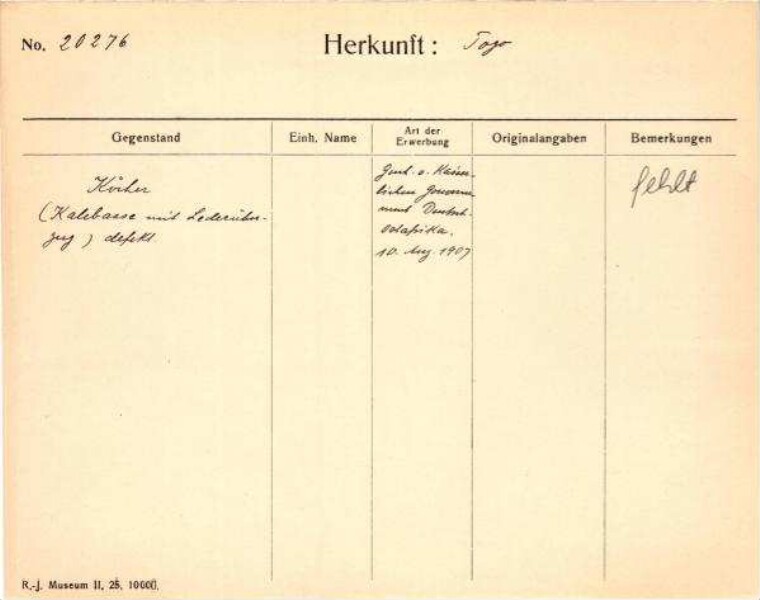 No. 20276 Herkunft: Togo
Gegenstand Einh. Name Art der Erwerbung Originalangaben Bemerkungen
Köcher
(Kalebasse mit Lederüber-
zug) defekt.
Gesch. v. Kaiser-
lichen Gouverne-
ment Deutsch-
Ostafrika.
10. Aug. 1907
fehlt
R.-J. Museum II, 25, 10000.